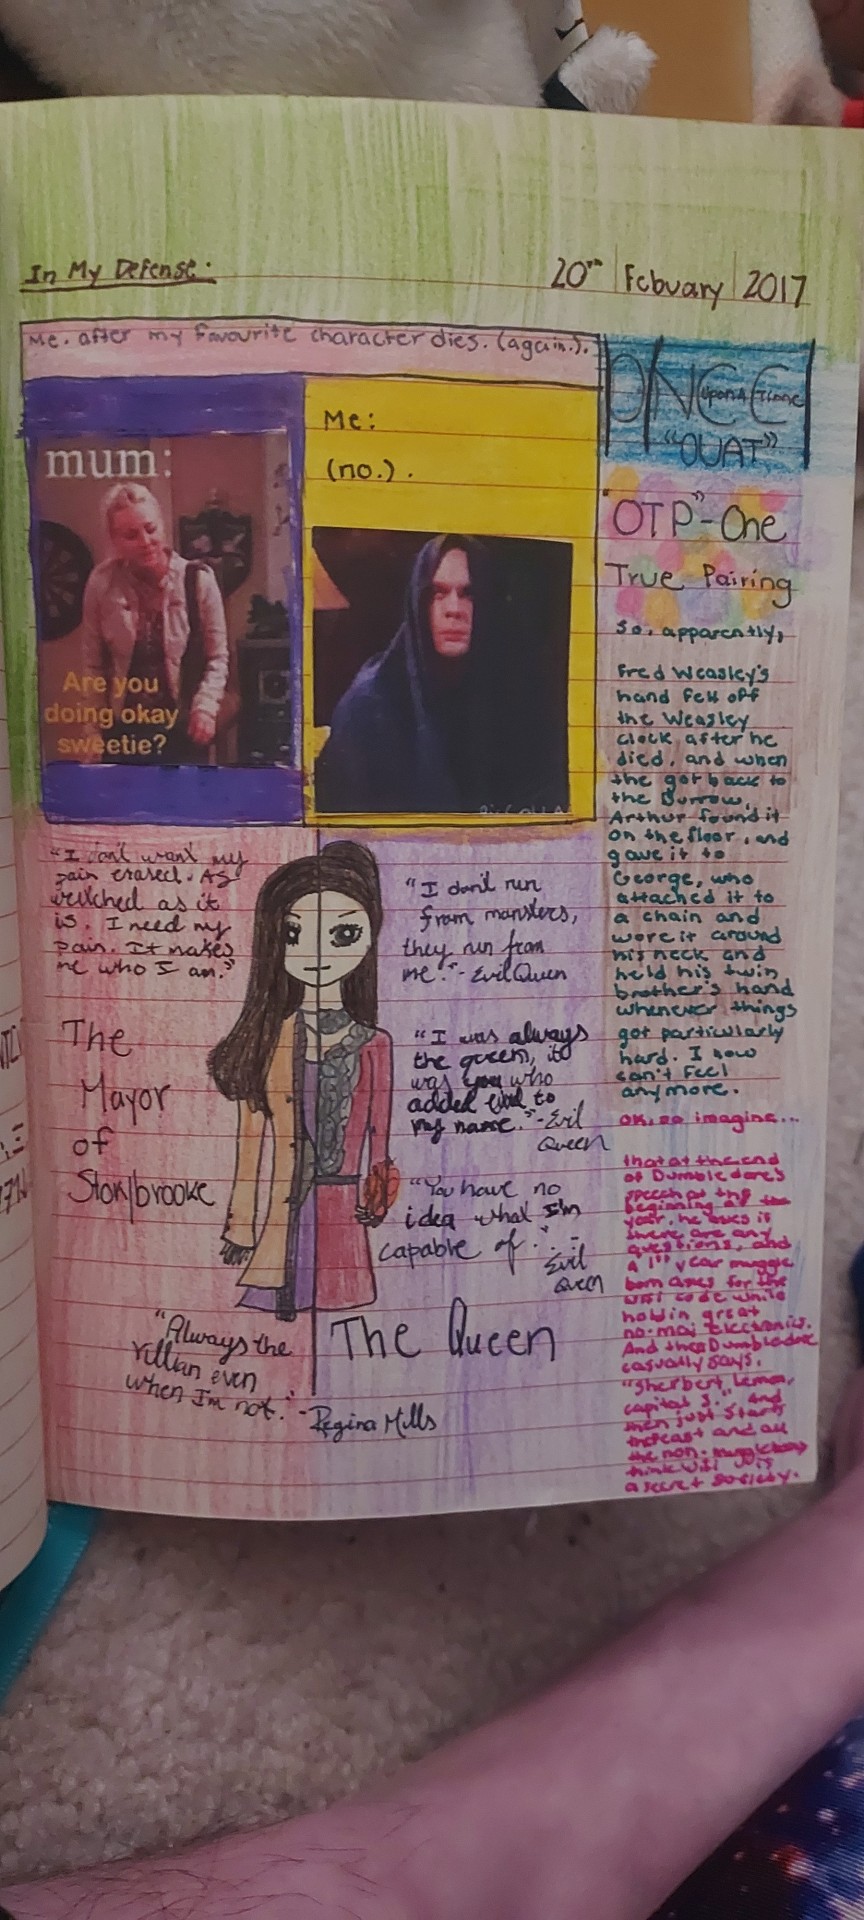 In My Defense:
20th Febuary 2017
Me. after my favourite character dies. (again.).
mum:
Are you
doing okay
sweetie?
Me:
(no.).
ONCE
Upon A Time
"OUAT"
"OTP"-One
True Pairing
So, apparently,
Fred Weasley's
hand fell off
the Weasley
clock after he
died, and when
the got back to
the Burrow,
Arthur found it
on the floor, and
gave it to
George, who
attached it to
a chain and
wore it around
his neck and
held his twin
brother's hand
whenever things
got particularly
hard. I now
can't feel
anymore.
OK, so imagine...
that at the end
of Dumbledore's
speech at the
beginning of the
year, he asks if
there are any
questions, and
a 1st year muggle
born asks for the
wifi code while
holdin great
no-maj Electronics.
And then Dumbledore
casually says,
"Sherbert Lemon,
capital S." And
then just starts
the feast and all
the non-muggleborns
think wifi is
a secret society.
"I don't want my
pain erased. As
wretched as it
is. I need my
pain. It makes
me who I am."
The
Mayor
of
Storybrooke
"Always the
villian even
when I'm not."
-Regina Mills
"I don't run
from monsters,
they run from
me."-Evil Queen
"I was always
the queen, it
was you who
added evil to
my name."-Evil
Queen
"You have no
idea what I'm
capable of."-
Evil
Queen
The Queen